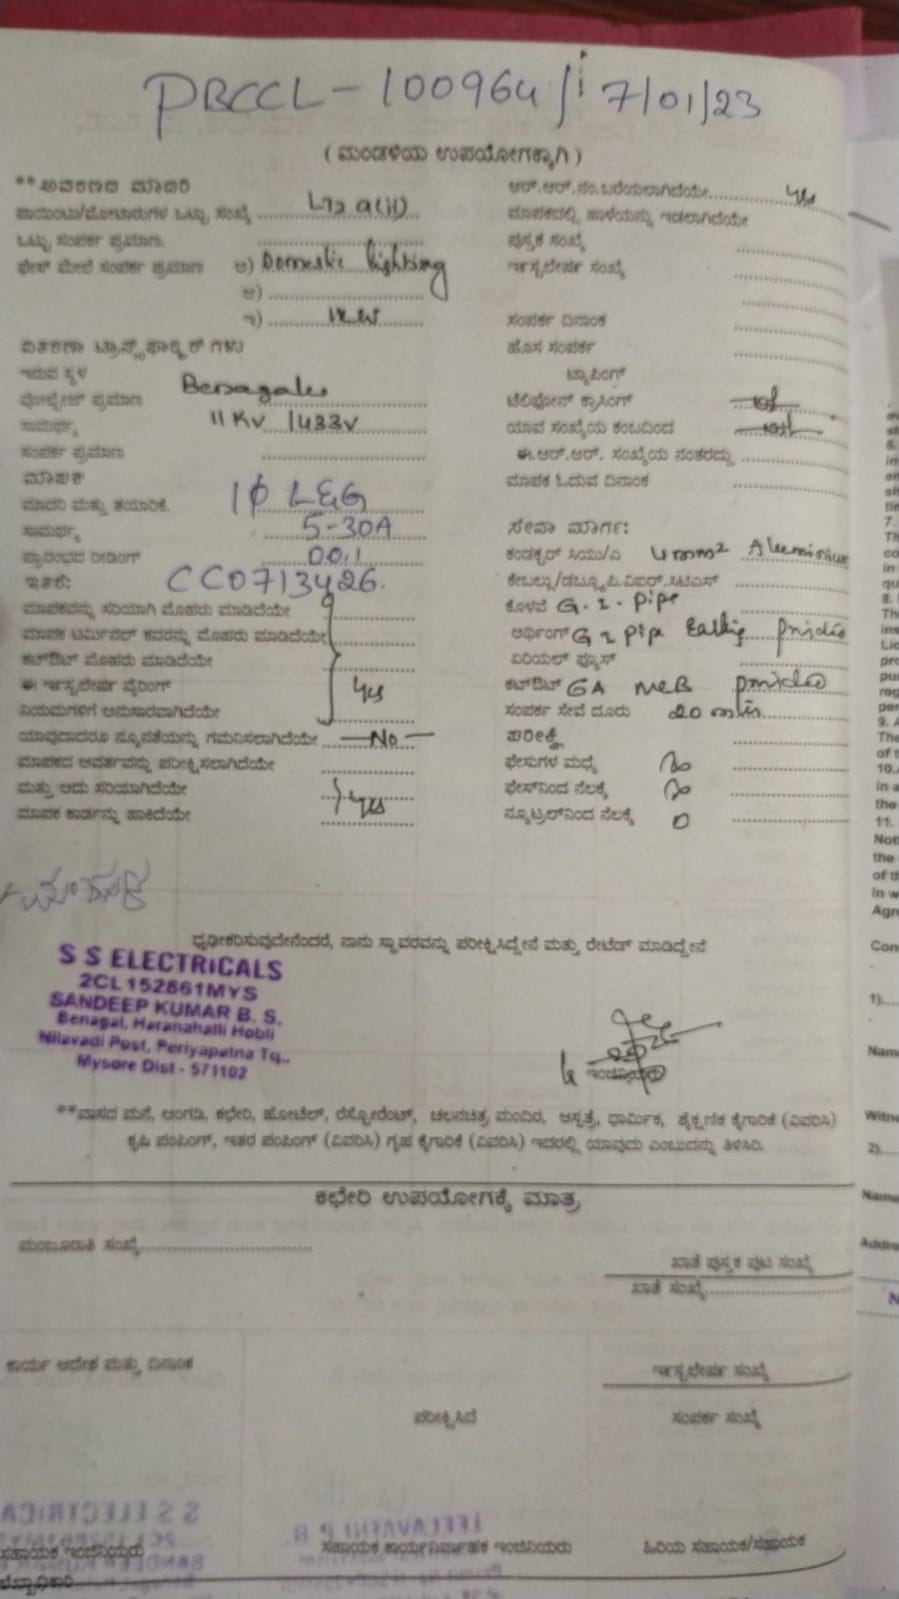 PBCCL - 100964 / 17/01/23
( ಮಂಡಳಿಯ ಉಪಯೋಗಕ್ಕಾಗಿ )
**ಉಪಕರಣದ ಮಾದರಿ
ಪಾಯಿಂಟು/ಮೋಟಾರುಗಳ ಒಟ್ಟು ಸಂಖ್ಯೆ
ಒಟ್ಟು ಸಂಪರ್ಕ ಪ್ರಮಾಣ.
ಫೇಸ್ ಮೇಲೆ ಸಂಪರ್ಕ ಪ್ರಮಾಣ ಅ) Domestic lighting
ಆ)
ಇ) 1KW
ವಿತರಣಾ ಟ್ರಾನ್ಸ್‌ಫಾರ್ಮರ್ ಗಳು
ಇರುವ ಸ್ಥಳ
ವೋಲ್ಟೇಜ್ ಪ್ರಮಾಣ
ಸಾಮರ್ಥ್ಯ 11 KV / 433V
ಸಂಪರ್ಕ ಪ್ರಮಾಣ
ಮಾಪಕ
ಮಾದರಿ ಮತ್ತು ತಯಾರಿಕೆ. 1φ L&G
ಸಾಮರ್ಥ್ಯ 5-30A
ಪ್ರಾರಂಭದ ರೀಡಿಂಗ್ 00.1
ಇತರೆ: CC0713426.
ಮಾಪಕವನ್ನು ಸರಿಯಾಗಿ ಮೊಹರು ಮಾಡಿದೆಯೇ
ಮಾಪಕ ಟರ್ಮಿನಲ್ ಕವರನ್ನು ಮೊಹರು ಮಾಡಿದೆಯೇ
ಕಟ್‌ಔಟ್ ಮೊಹರು ಮಾಡಿದೆಯೇ
ಈ ಇನ್ಸ್ಟಲೇಶನ್ ವೈರಿಂಗ್ yes
ನಿಯಮಗಳಿಗೆ ಅನುಸಾರವಾಗಿದೆಯೇ
ಯಾವುದಾದರೂ ನ್ಯೂನತೆಯನ್ನು ಗಮನಿಸಲಾಗಿದೆಯೇ No
ಮಾಪಕದ ಆವರ್ತವನ್ನು ಪರೀಕ್ಷಿಸಲಾಗಿದೆಯೇ
ಮತ್ತು ಅದು ಸರಿಯಾಗಿದೆಯೇ yes
ಮಾಪಕ ಕಾರ್ಡನ್ನು ಹಾಕಿದೆಯೇ
ಆರ್.ಆರ್.ನಂ.ಬರೆಯಲಾಗಿದೆಯೇ yes
ಮಾಪಕದಲ್ಲಿ ಹಾಳೆಯನ್ನು ಇಡಲಾಗಿದೆಯೇ
ಪುಸ್ತಕ ಸಂಖ್ಯೆ
ಇನ್ಸ್ಟಲೇಶನ್ ಸಂಖ್ಯೆ
ಸಂಪರ್ಕ ದಿನಾಂಕ
ಹೊಸ ಸಂಪರ್ಕ
ಟ್ಯಾಪಿಂಗ್
ಟೆಲಿಫೋನ್ ಕ್ರಾಸಿಂಗ್
ಯಾವ ಸಂಖ್ಯೆಯ ಕಂಬದಿಂದ
ಈ.ಆರ್.ಆರ್. ಸಂಖ್ಯೆಯ ನಂತರದ್ದು
ಮಾಪಕ ಓದುವ ದಿನಾಂಕ
ಸೇವಾ ಮಾರ್ಗ:
ಕಂಡಕ್ಟರ್ ಸಿಯು/ಎ 4mm² Aluminium
ಕೊಳವೆ G. I. Pipe
ಅರ್ಥಿಂಗ್ G I Pipe Earthing provided
ಏರಿಯಲ್ ಫ್ಯೂಸ್
ಕಟ್‌ಔಟ್ 6A MCB provided
ಸಂಪರ್ಕ ಸೇವೆ ದೂರು 20 mtr
ಪರೀಕ್ಷೆ
ಫೇಸುಗಳ ಮಧ್ಯೆ
ಫೇಸ್‌ನಿಂದ ನೆಲಕ್ಕೆ
ನ್ಯೂಟ್ರಲ್‌ನಿಂದ ನೆಲಕ್ಕೆ 0
ಧೃಢೀಕರಿಸುವುದೇನೆಂದರೆ, ನಾನು ಸ್ಥಾವರವನ್ನು ಪರೀಕ್ಷಿಸಿದ್ದೇನೆ ಮತ್ತು ರೇಟೆಡ್ ಮಾಡಿದ್ದೇನೆ
S S ELECTRICALS
2CL152861MYS
SANDEEP KUMAR B. S.
Benagal, Haranahalli Hobli
Nilavadi Post, Periyapatna Tq.,
Mysore Dist - 571102
ಇಂಜಿನಿಯರು
**ವಾಸದ ಮನೆ, ಅಂಗಡಿ, ಕಛೇರಿ, ಹೋಟೆಲ್, ರೆಸ್ಟೋರೆಂಟ್, ಚಲನಚಿತ್ರ ಮಂದಿರ, ಆಸ್ಪತ್ರೆ, ಧಾರ್ಮಿಕ, ಶೈಕ್ಷಣಿಕ ಕೈಗಾರಿಕೆ (ವಿವರಿಸಿ)
ಕೃಷಿ ಪಂಪಿಂಗ್, ಇತರ ಪಂಪಿಂಗ್ (ವಿವರಿಸಿ) ಗೃಹ ಕೈಗಾರಿಕೆ (ವಿವರಿಸಿ) ಇದರಲ್ಲಿ ಯಾವುದು ಎಂಬುದನ್ನು ತಿಳಿಸಿರಿ.
ಕಛೇರಿ ಉಪಯೋಗಕ್ಕೆ ಮಾತ್ರ
ಮಂಜೂರಾತಿ ಸಂಖ್ಯೆ
ಖಾತೆ ಪುಸ್ತಕ ಪುಟ ಸಂಖ್ಯೆ
ಖಾತೆ ಸಂಖ್ಯೆ
ಕಾರ್ಯ ಆದೇಶ ಮತ್ತು ದಿನಾಂಕ
ಇನ್ಸ್ಟಲೇಶನ್ ಸಂಖ್ಯೆ
ಪರೀಕ್ಷಿಸಿದೆ
ಸಂಪರ್ಕ ಸಂಖ್ಯೆ
ಸಹಾಯಕ ಇಂಜಿನಿಯರು
ಸಹಾಯಕ ಕಾರ್ಯನಿರ್ವಾಹಕ ಇಂಜಿನಿಯರು
ಹಿರಿಯ ಸಹಾಯಕ/ಸಹಾಯಕ